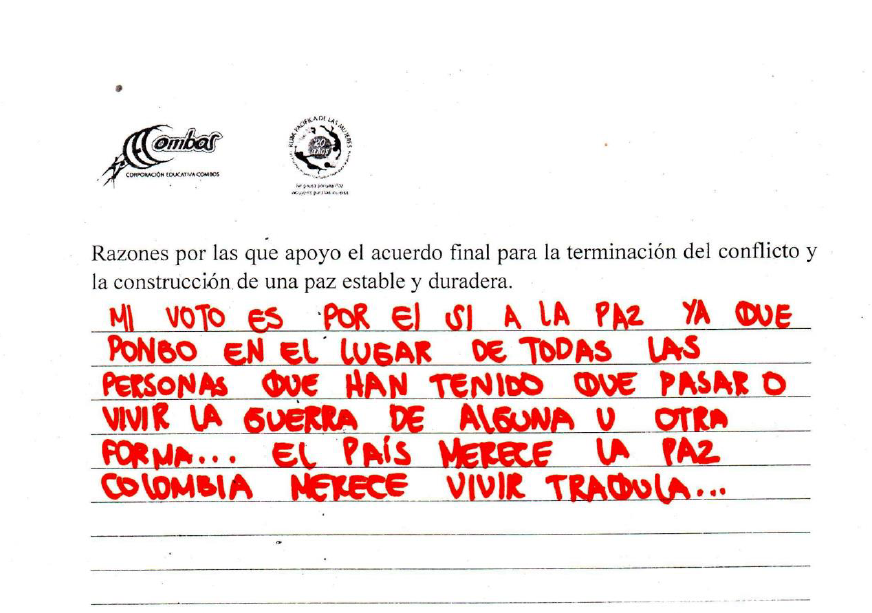 Combos
CORPORACIÓN EDUCATIVA COMBOS
RUTA PACIFICA DE LAS MUJERES
20 AÑOS
Razones por las que apoyo el acuerdo final para la terminación del conflicto y
la construcción de una paz estable y duradera.
MI VOTO ES POR El SI A LA PAZ YA QUE
PONGO EN EL LUGAR DE TODAS LAS
PERSONAS QUE HAN TENIDO QUE PASAR O
VIVIR LA GUERRA DE AlGUNA U OTRA
FORMA... EL PAÍS MERECE LA PAZ
COlOMBIA MERECE VIVIR TRAQULA...